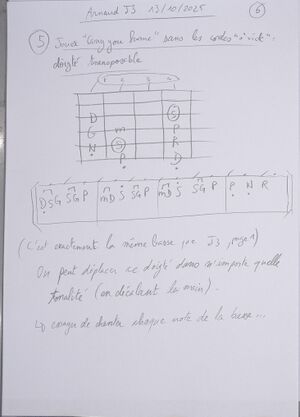 Arnaud J3 13/10/2025 6
5 Jouer "Carry you home" sans les cordes "à vide":
doigté transposable
1 2 3 4
D S
G m P
N S R
P D
D S G S G P m D S S G P m D S S G P P N R
(C'est exactement la même basse que J3, page 1)
On peut déplacer ce doigté dans n'importe quelle
tonalité (en décalant la main).
↳ essayer de chanter chaque note de la basse...